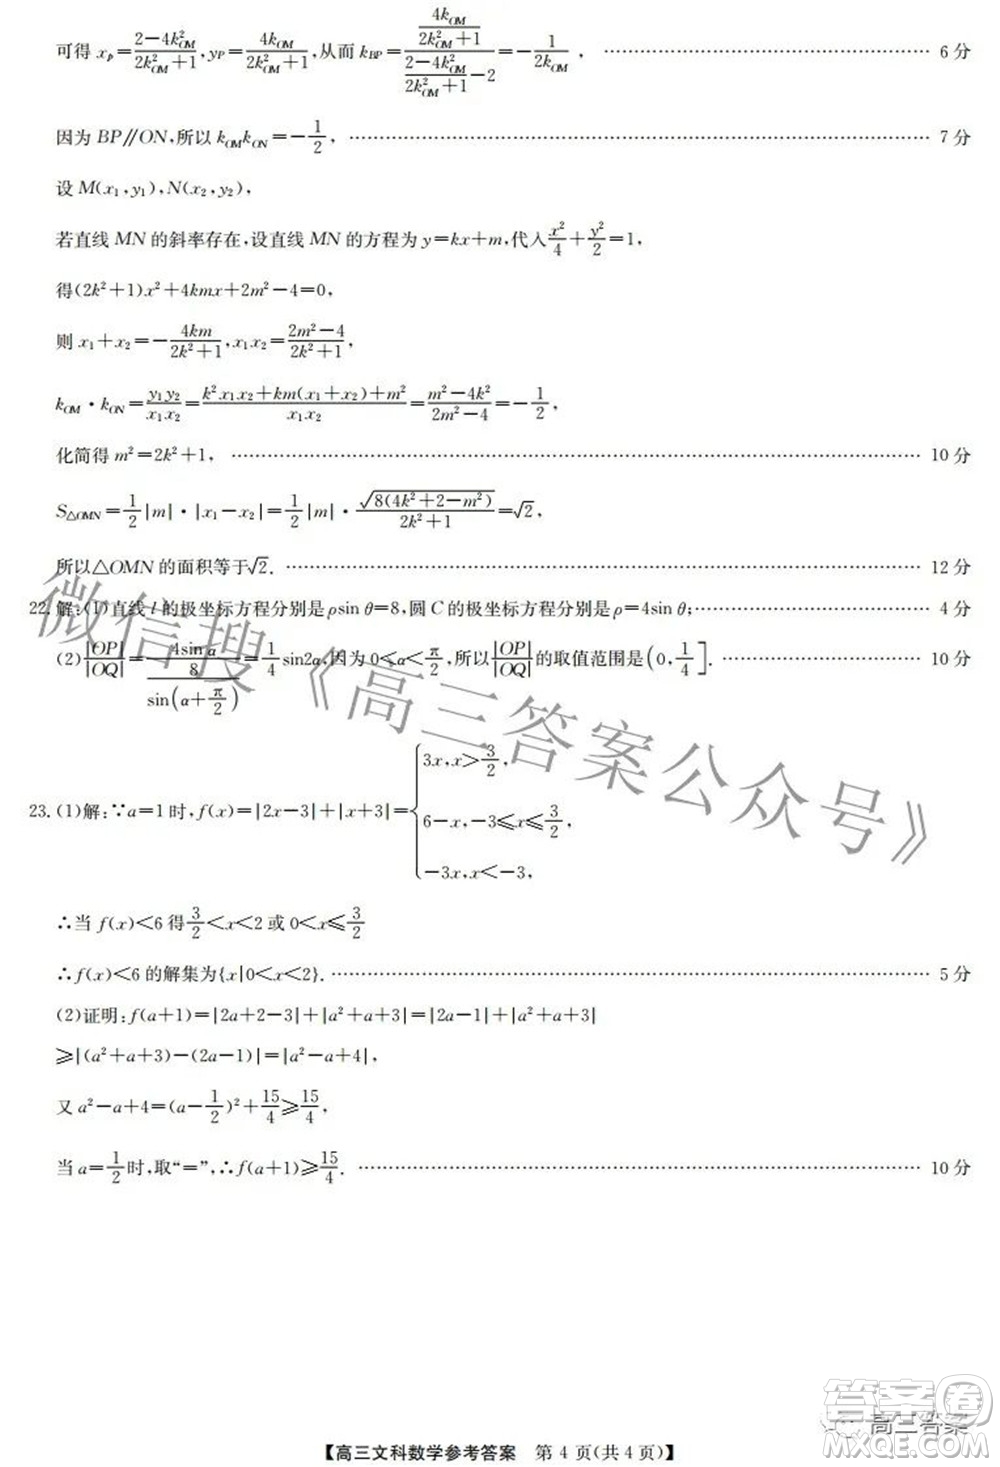 可得 x_P=(2-4k²_OM)/(2k²_OM+1), y_P=4k_OM/(2k²_OM+1), 从而 k_BP=(4k_OM/(2k²_OM+1))/((2-4k²_OM)/(2k²_OM+1)-2)=-1/(2k_OM), …… 6 分
因为 BP∥ON,所以 k_OM k_ON=-1/2, …… 7 分
设 M(x₁,y₁),N(x₂,y₂),
若直线 MN 的斜率存在,设直线 MN 的方程为 y=kx+m,代入 x²/4+y²/2=1,
得(2k²+1)x²+4kmx+2m²-4=0,
则 x₁+x₂=-4km/(2k²+1), x₁x₂=(2m²-4)/(2k²+1),
k_OM·k_ON=y₁y₂/x₁x₂=(k²x₁x₂+km(x₁+x₂)+m²)/x₁x₂=(m²-4k²)/(2m²-4)=-1/2,
化简得 m²=2k²+1, …… 10 分
S△OMN=1/2|m|·|x₁-x₂|=1/2|m|·√(8(4k²+2-m²))/(2k²+1)=√2,
所以△OMN 的面积等于√2. …… 12 分
22.解:(1)直线 l 的极坐标方程分别是 ρsin θ=8,圆 C 的极坐标方程分别是 ρ=4sin θ; …… 4 分
(2)|OP|/|OQ|=4sin α/(8/sin(α+π/2))=1/4 sin2α,因为 0≤α<π/2,所以|OP|/|OQ|的取值范围是(0,1/4]. …… 10 分
23.(1)解:∵a=1 时,f(x)=|2x-3|+|x+3|={3x,x>3/2,
6-x,-3≤x≤3/2,
-3x,x<-3,
∴当 f(x)<6 得 3/2<x<2 或 0<x≤3/2
∴f(x)<6 的解集为{x|0<x<2}. …… 5 分
(2)证明:f(a+1)=|2a+2-3|+|a²+a+3|=|2a-1|+|a²+a+3|
≥|(a²+a+3)-(2a-1)|=|a²-a+4|,
又 a²-a+4=(a-1/2)²+15/4≥15/4,
当 a=1/2 时,取“=”,∴f(a+1)≥15/4. …… 10 分
微信搜《高三答案公众号》
答案圈
高三答案
【高三文科数学参考答案 第 4 页(共 4 页)】